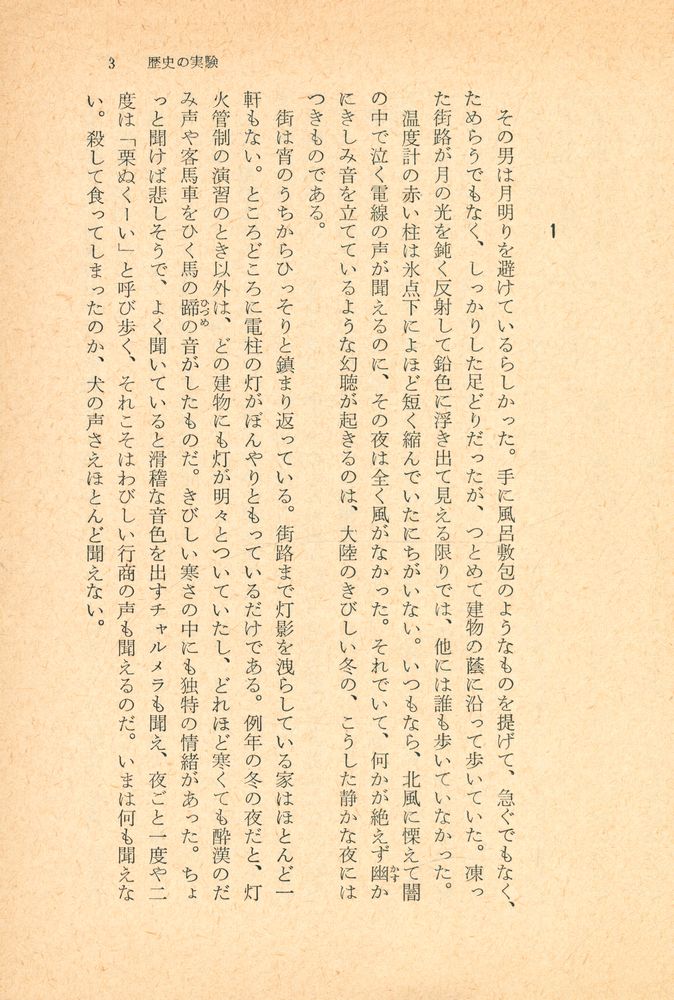 3　歴史の実験
1
その男は月明りを避けているらしかった。手に風呂敷包のようなものを提げて、急ぐでもなく、
ためらうでもなく、しっかりした足どりだったが、つとめて建物の蔭に沿って歩いていた。凍っ
た街路が月の光を鈍く反射して鉛色に浮き出て見える限りでは、他には誰も歩いていなかった。
温度計の赤い柱は氷点下によほど短く縮んでいたにちがいない。いつもなら、北風に慄えて闇
の中で泣く電線の声が聞えるのに、その夜は全く風がなかった。それでいて、何かが絶えず幽か
にきしみ音を立てているような幻聴が起きるのは、大陸のきびしい冬の、こうした静かな夜には
つきものである。
街は宵のうちからひっそりと鎮まり返っている。街路まで灯影を洩らしている家はほとんど一
軒もない。ところどころに電柱の灯がぼんやりともっているだけである。例年の冬の夜だと、灯
火管制の演習のとき以外は、どの建物にも灯が明々とついていたし、どれほど寒くても酔漢のだ
み声や客馬車をひく馬の蹄の音がしたものだ。きびしい寒さの中にも独特の情緒があった。ちょ
っと聞けば悲しそうで、よく聞いていると滑稽な音色を出すチャルメラも聞え、夜ごと一度や二
度は「栗ぬくーい」と呼び歩く、それこそはわびしい行商の声も聞えるのだ。いまは何も聞えな
い。殺して食ってしまったのか、犬の声さえほとんど聞えない。